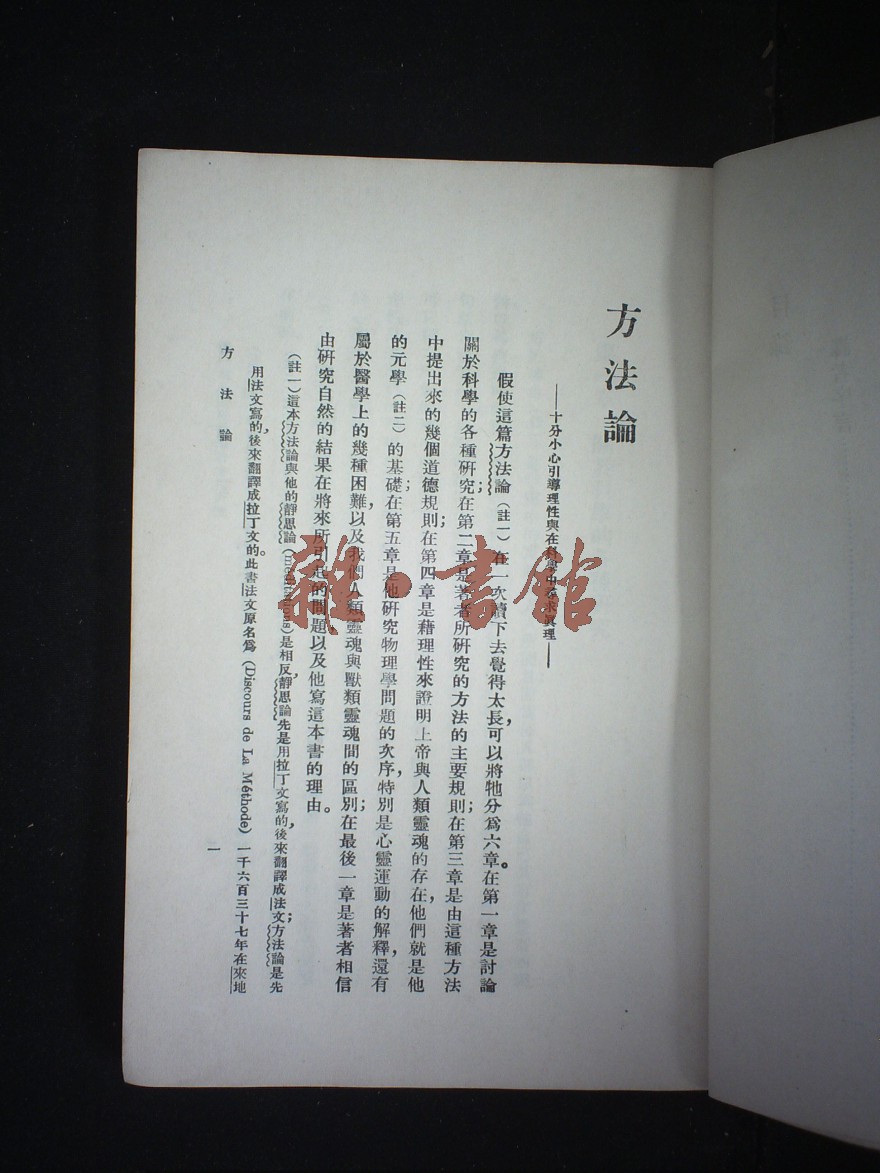 方法論
——十分小心引導理性與在科學中尋求眞理——
假使這篇方法論(註一)在一次讀下去覺得太長,可以將牠分爲六章。在第一章是討論
關於科學的各種研究;在第二章是著者所研究的方法的主要規則;在第三章是由這種方法
中提出來的幾個道德規則;在第四章是藉理性來證明上帝與人類靈魂的存在,他們就是他
的元學(註二)的基礎;在第五章是他研究物理學問題的次序,特別是心靈運動的解釋,還有
屬於醫學上的幾種困難,以及我們人類靈魂與獸類靈魂間的區別;在最後一章是著者相信
由研究自然的結果在將來所引起的問題以及他寫這本書的理由。
(註一)這本方法論與他的靜思論(meditations)是相反,靜思論先是用拉丁文寫的,後來翻譯成法文;方法論是先
用法文寫的,後來翻譯成拉丁文的。此書法文原名爲(Discours de La Méthode)一千六百三十七年在來地
方法論
一
雜·書館